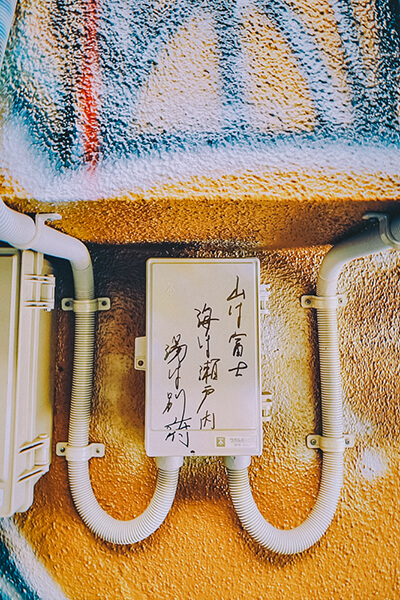 山は富士
海は瀬戸内
湯は別府